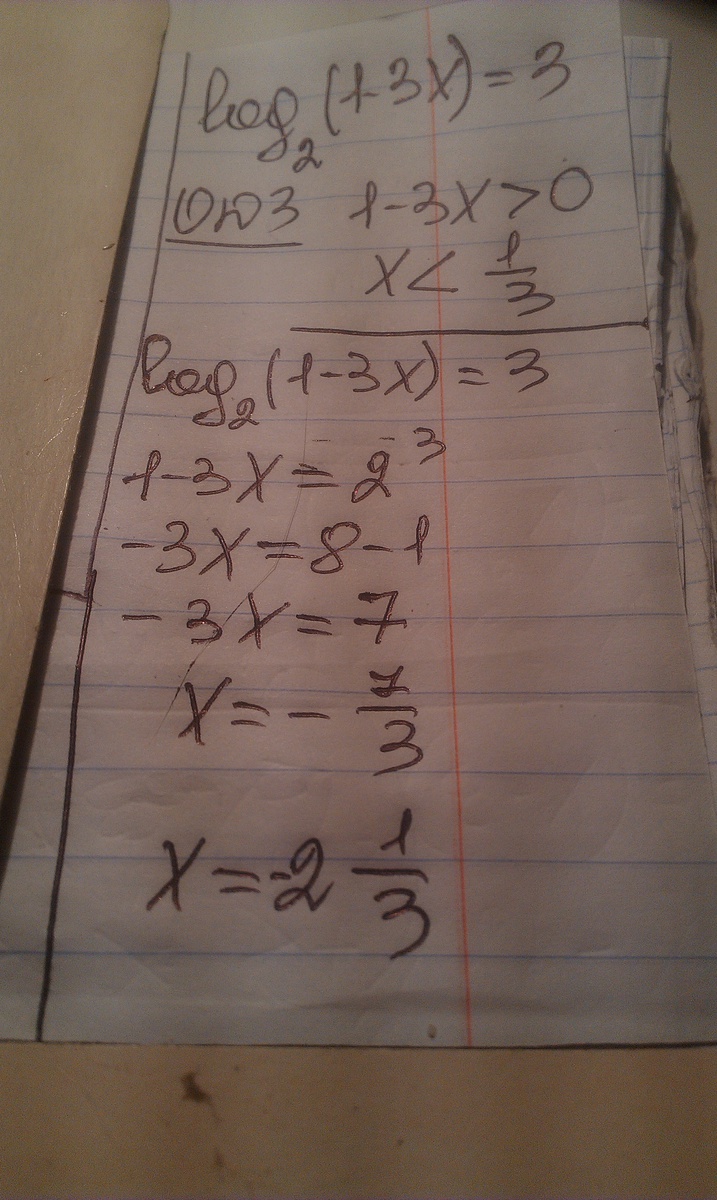 log₂(1-3x)=3
ОДЗ 1-3x>0
x< 1/3
log₂(1-3x)=3
1-3x=2³
-3x=8-1
-3x=7
x=- 7/3
x=-2 1/3